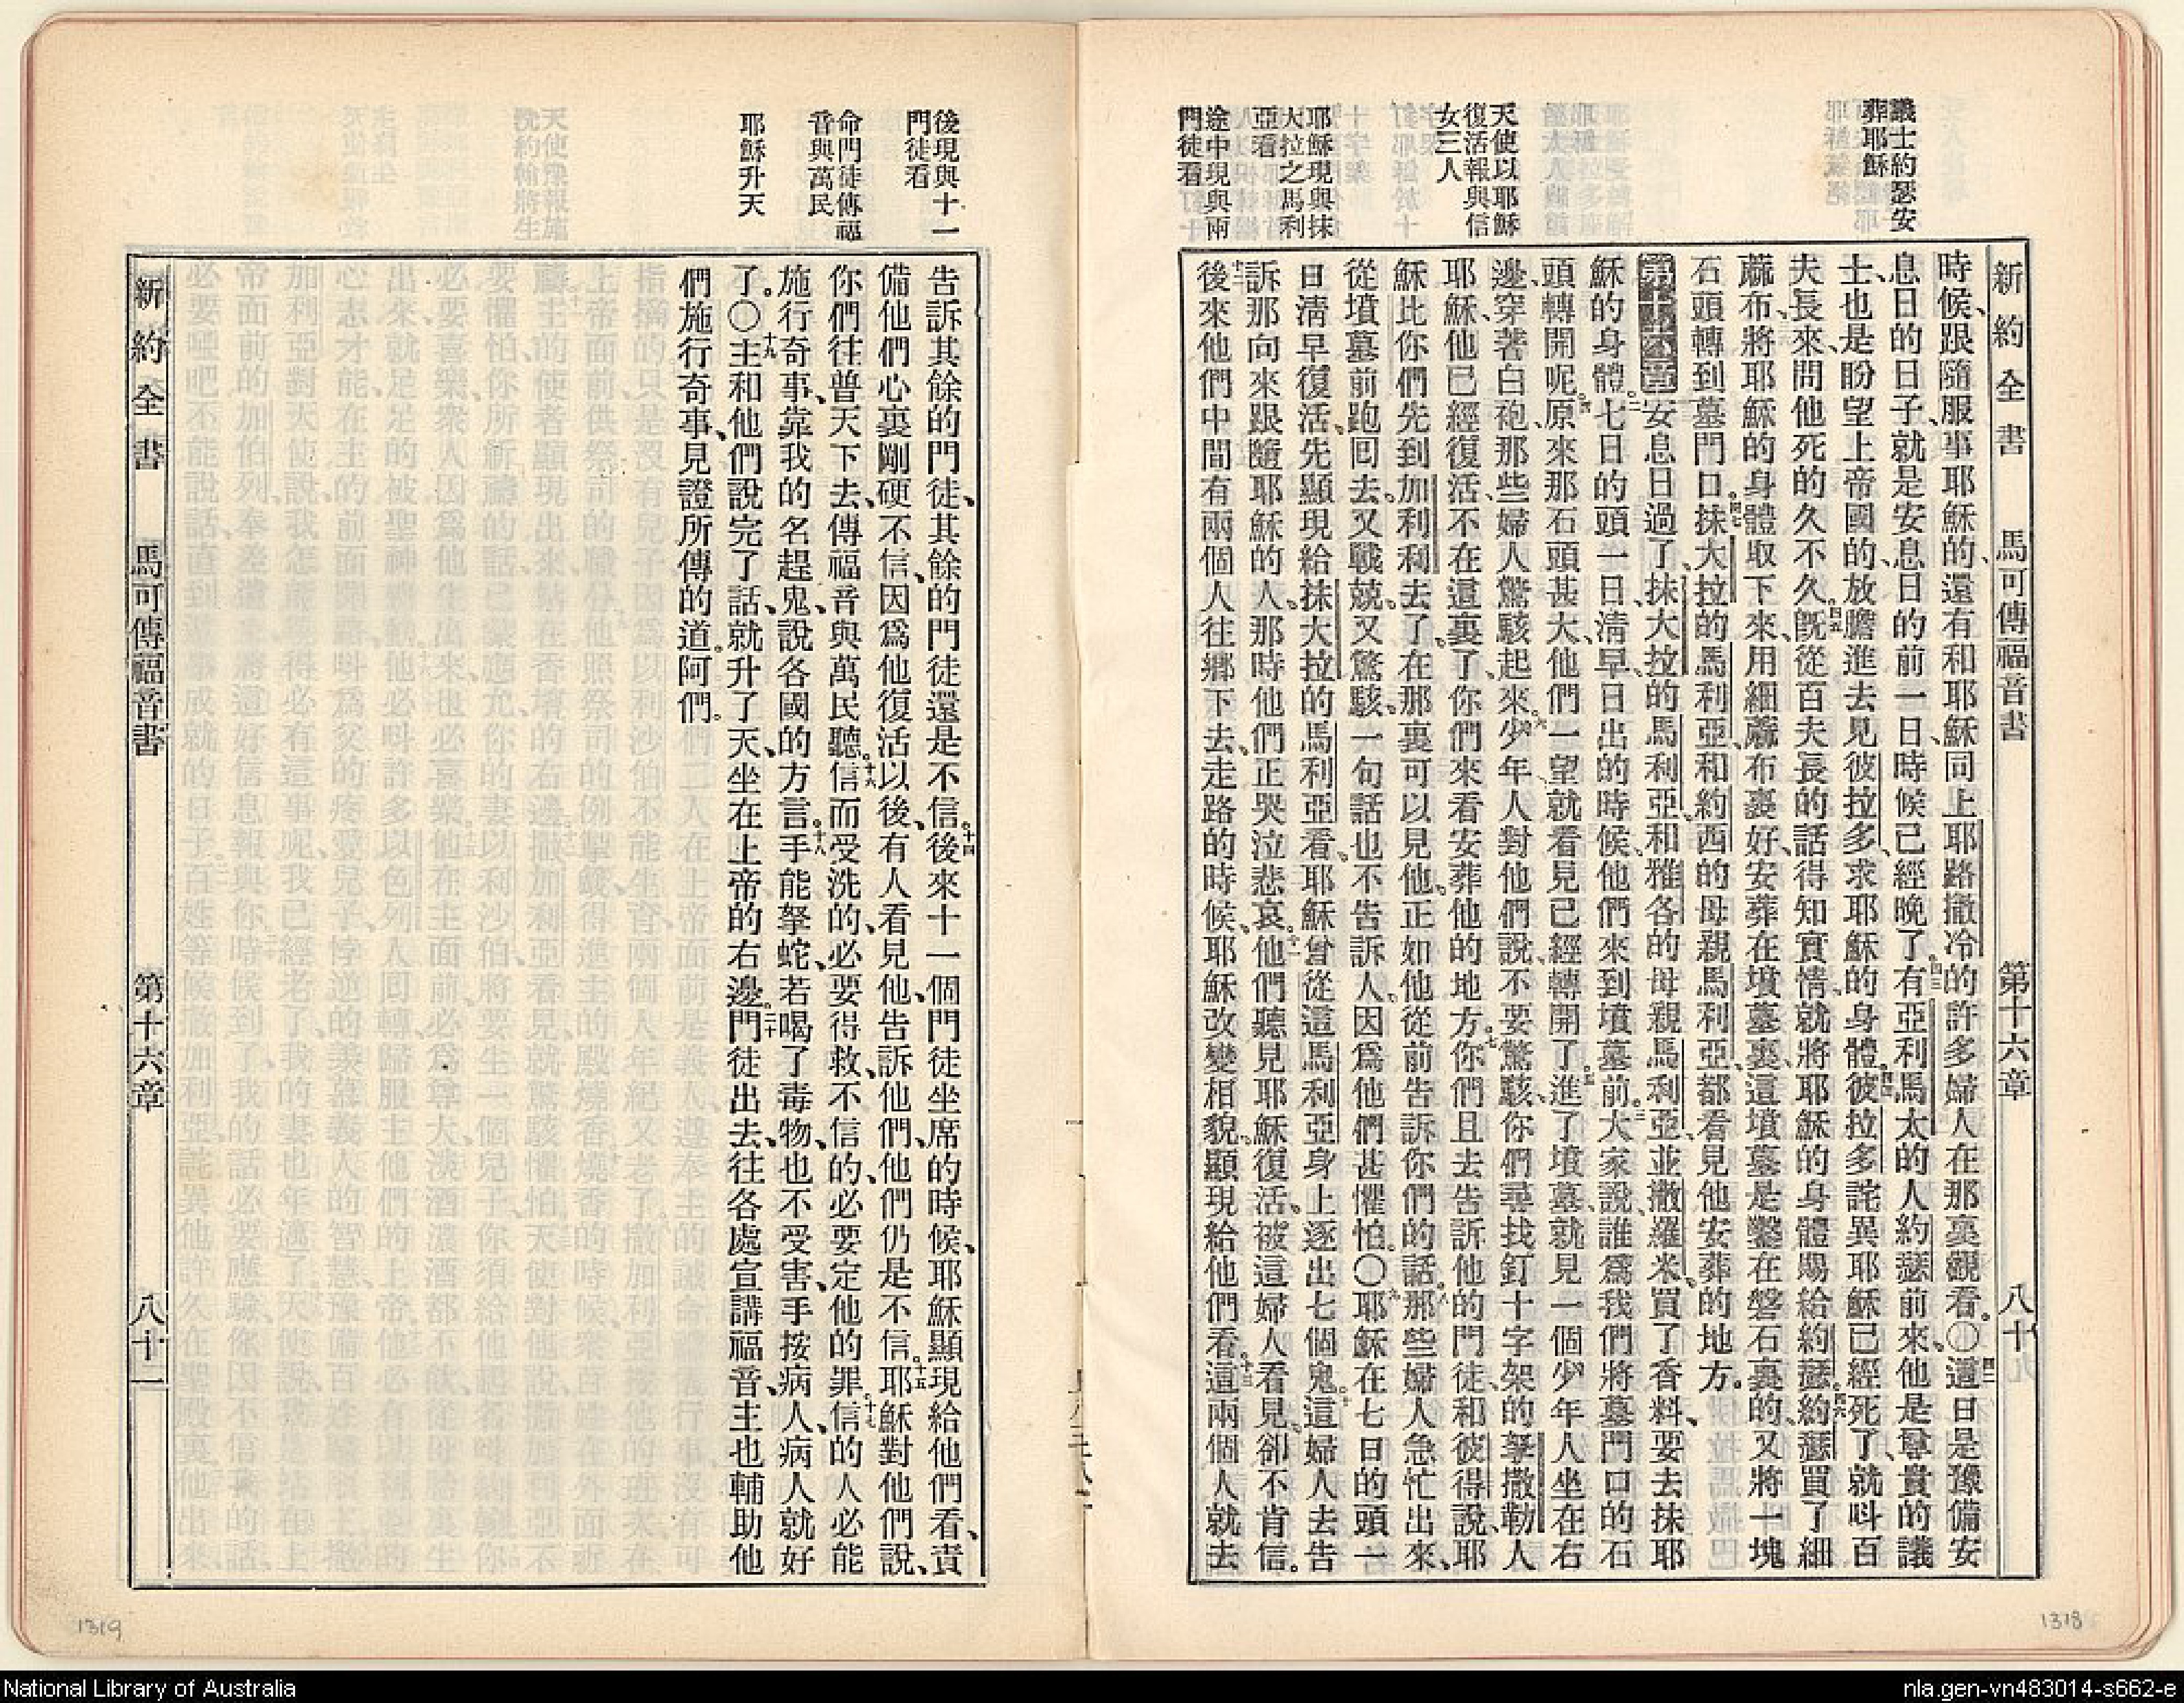 議士約瑟安
葬耶穌
天使以耶穌
復活報與信
女三人
耶穌現與抹
大拉之馬利
亞看
途中現與兩
門徒看
新約全書 馬可傳福音書 第十六章 八十
時候、跟隨服事耶穌的、還有和耶穌同上耶路撒冷的許多婦人在那裏觀看。〇四二這日是豫備安
息日的日子、就是安息日的前一日、時候已經晚了。四三有亞利馬太的人約瑟前來、他是尊貴的議
士、也是盼望上帝國的、放膽進去見彼拉多、求耶穌的身體。四四彼拉多詫異耶穌已經死了、就呌百
夫長來、問他死的久不久。四五旣從百夫長的話得知實情、就將耶穌的身體賜給約瑟。四六約瑟買了細
蔴布、將耶穌的身體取下來、用細蔴布裹好、安葬在墳墓裏、這墳墓是鑿在磐石裏的、又將一塊
石頭轉到墓門口。四七抹大拉的馬利亞、和約西的母親馬利亞、都看見他安葬的地方。
第十六章安息日過了、抹大拉的馬利亞、和雅各的母親馬利亞、並撒羅米、買了香料、要去抹耶
穌的身體。二七日的頭一日、清早、日出的時候、他們來到墳墓前。三大家說、誰爲我們將墓門口的石
頭轉開呢。四原來那石頭甚大、他們一望、就看見已經轉開了。五進了墳墓、就見一個少年人坐在右
邊、穿著白袍、那些婦人驚駭起來。六少年人對他們說、不要驚駭、你們尋找釘十字架的拏撒勒人
耶穌、他已經復活、不在這裏了、你們來看安葬他的地方。七你們且去告訴他的門徒、和彼得說、耶
穌比你們先到加利利去了。在那裏可以見他、正如他從前告訴你們的話。八那些婦人急忙出來、
從墳墓前跑回去、又戰兢、又驚駭、一句話也不告訴人、因爲他們甚懼怕。〇九耶穌在七日的頭一
日清早復活、先顯現給抹大拉的馬利亞看、耶穌曾從這馬利亞身上逐出七個鬼。十這婦人去告
訴那向來跟隨耶穌的人、那時他們正哭泣悲哀。十一他們聽見耶穌復活、被這婦人看見、卻不肯信。
十二後來他們中間有兩個人往鄉下去、走路的時候、耶穌改變相貌、顯現給他們看。十三這兩個人就去
1318
後現與十一
門徒看
命門徒傳福
音與萬民
耶穌升天
告訴其餘的門徒、其餘的門徒還是不信。十四後來十一個門徒坐席的時候、耶穌顯現給他們看、責
備他們心裏剛硬不信、因爲他復活以後、有人看見他、告訴他們、他們仍是不信。十五耶穌對他們說、
你們往普天下去、傳福音與萬民聽。十六信而受洗的、必要得救、不信的、必要定他的罪。十七信的人必能
施行奇事、靠我的名趕鬼、說各國的方言。十八手能拏蛇、若喝了毒物、也不受害、手按病人、病人就好
了。〇十九主和他們說完了話、就升了天、坐在上帝的右邊。二十門徒出去、往各處宣講福音、主也輔助他
們施行奇事、見證所傳的道。阿們。
新約全書 馬可傳福音書 第十六章 八十一
1319
National Library of Australia
nla.gen-vn483014-s662-e